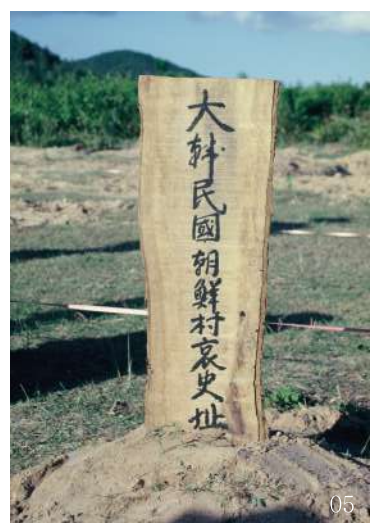 大韓民國朝鮮村哀史址
05